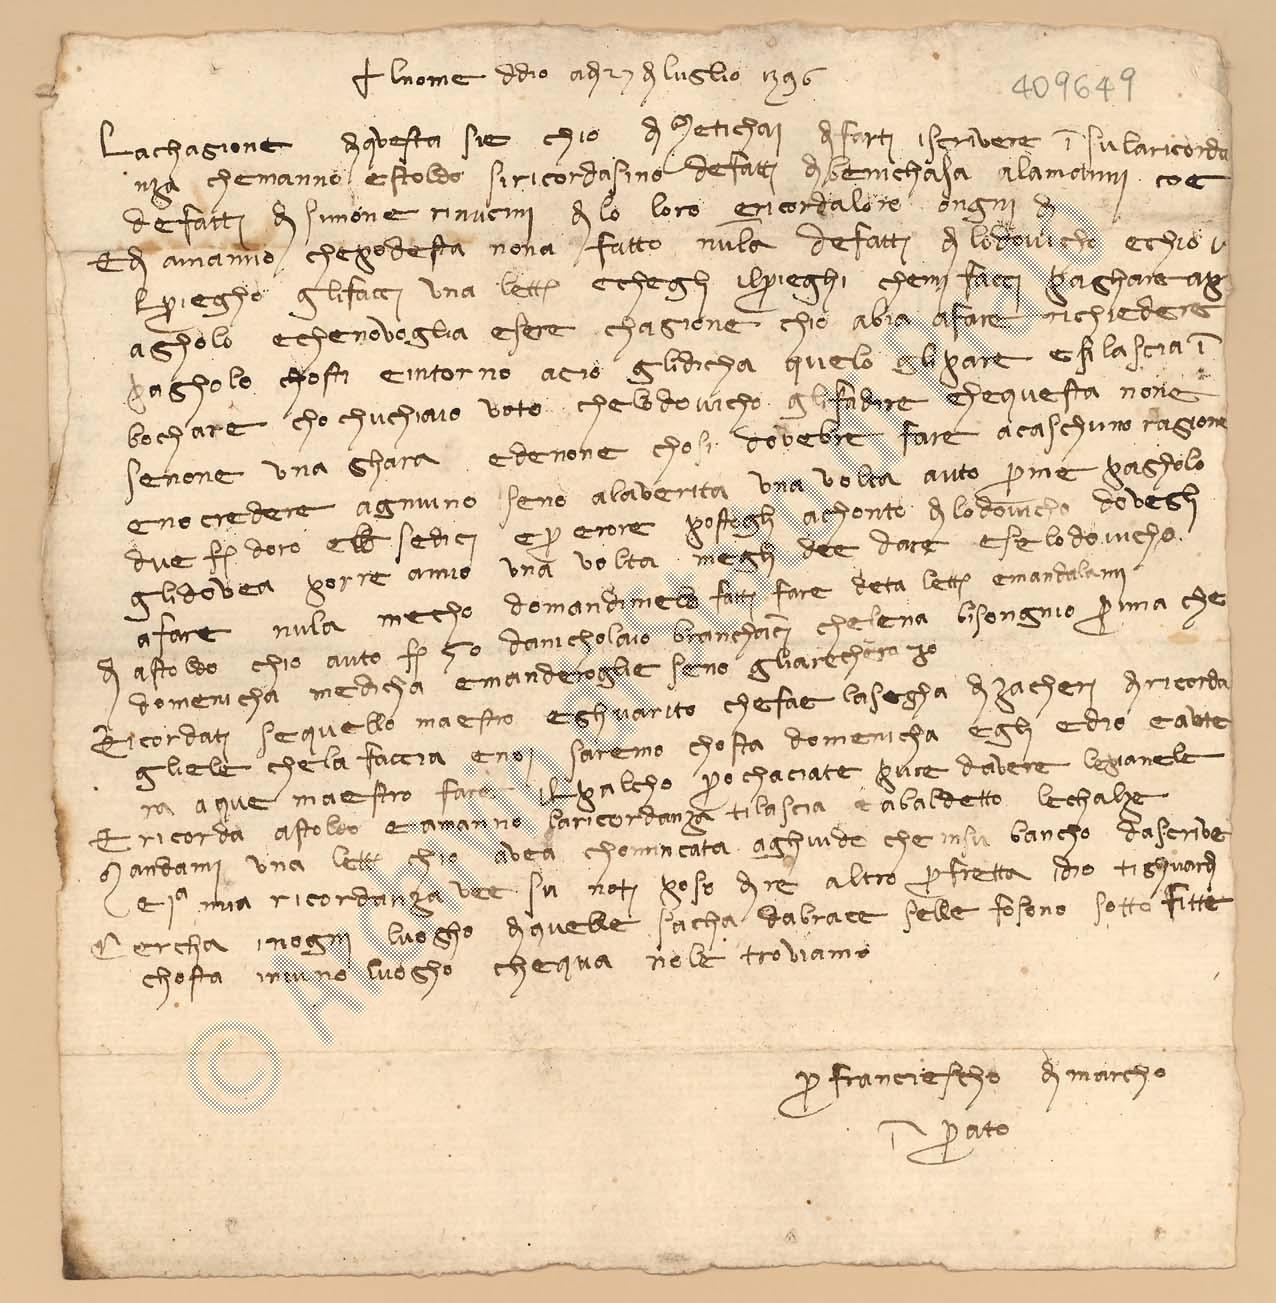 + lnome ddio adi 27 di luglio 1396
409649
Lachagione di questa sie chio dimetichai di farti iscrivere in su laricorda
nza chemanno e stoldo siricordasino de fatti di benichasa alamanni coe
de fatti di simone rinucini di lo loro ericordalore ongni di
E di amanno chepodesta nona fatto nula de fatti di lodovicho echio
lpriegho gli facci una lettera echegli ilprieghi chemi facci paghare
agholo echenovoglia esere chagione chio abia afare richiedere
pagholo chosti eintorno acio glidicha quelo gli pare e si lascia in
bochare cho chuchiaio voto chelodovicho gli fa dire chequesta none
senone una ghara edenone chosi dovebre fare acaschuno ragione
enocredere agniuno seno alaverita una volta auto per me pagholo
due f. doro e sedici e per erore postogli achonto di lodovicho dovegli
glidovea porre amio una volta megli dee dare e se lodovicho
afare nula mecho domandimelo fatti fare deta lettera emandalami
di astoldo chio auto f. 50 danicholaio chelena bisongnio prima che
domenicha medicha emanderoglie seno gliarechera
Ricordati sequello maestro eghuarito chefae lasegha di zacheri di ricorda
gliele chela faccia enoi saremo chosta domenicha egli edio eavte
ra aque maestro fare ilpalcho prochaciate pure davere lepianele
E ricorda astoldo eamanno laricordanza tilascia e abaldetto lechalze
Mandami una lettera chio avea chominciata aghuido che insu bancho dascrive
e 1a mia ricordanza vee su noti poso dire altro per fretta idio tighuardi
Cercha inogni luogho di quelle sacha dabrace selle fosono sotto fitte
chosta iniuno luogho chequa nole troviamo
per franciescho di marcho
in prato
© Archivio di Stato di Prato